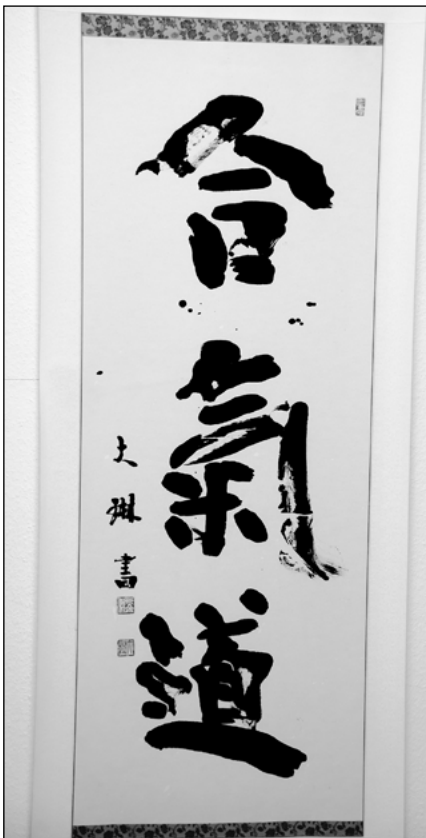 合氣道
大琳書